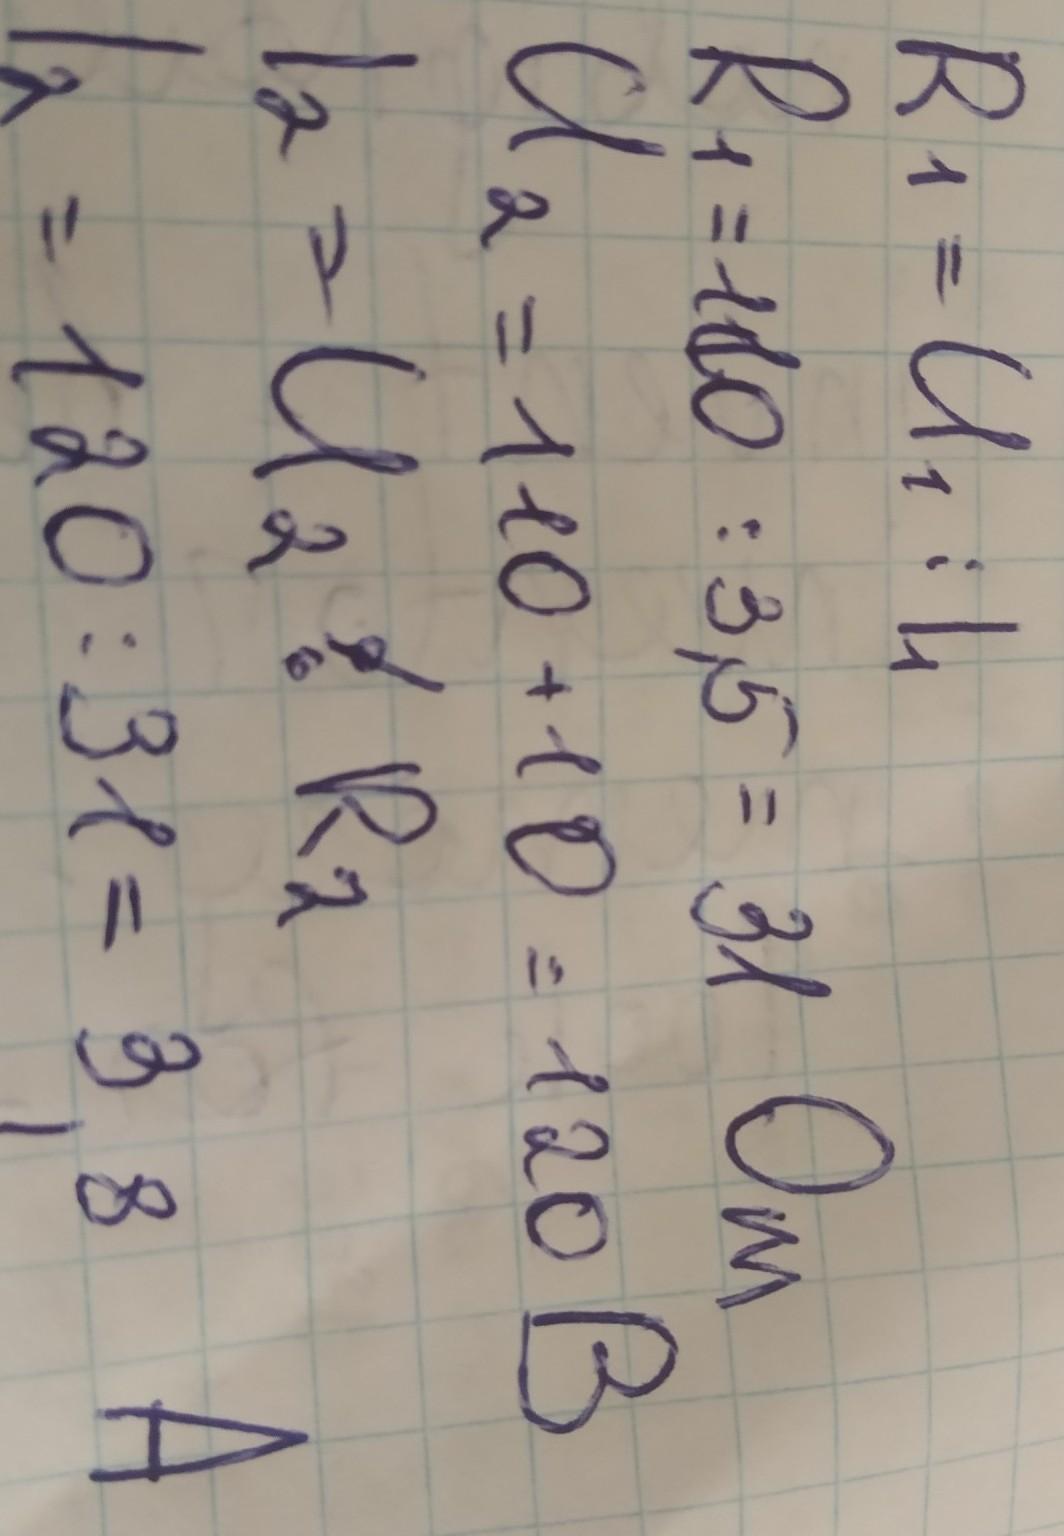 R1 = U1 : I1
R1 = 110 : 3,5 = 31 Ом
U2 = 110 + 10 = 120 В
I2 = U2 : R2
I2 = 120 : 31 = 3,8 А